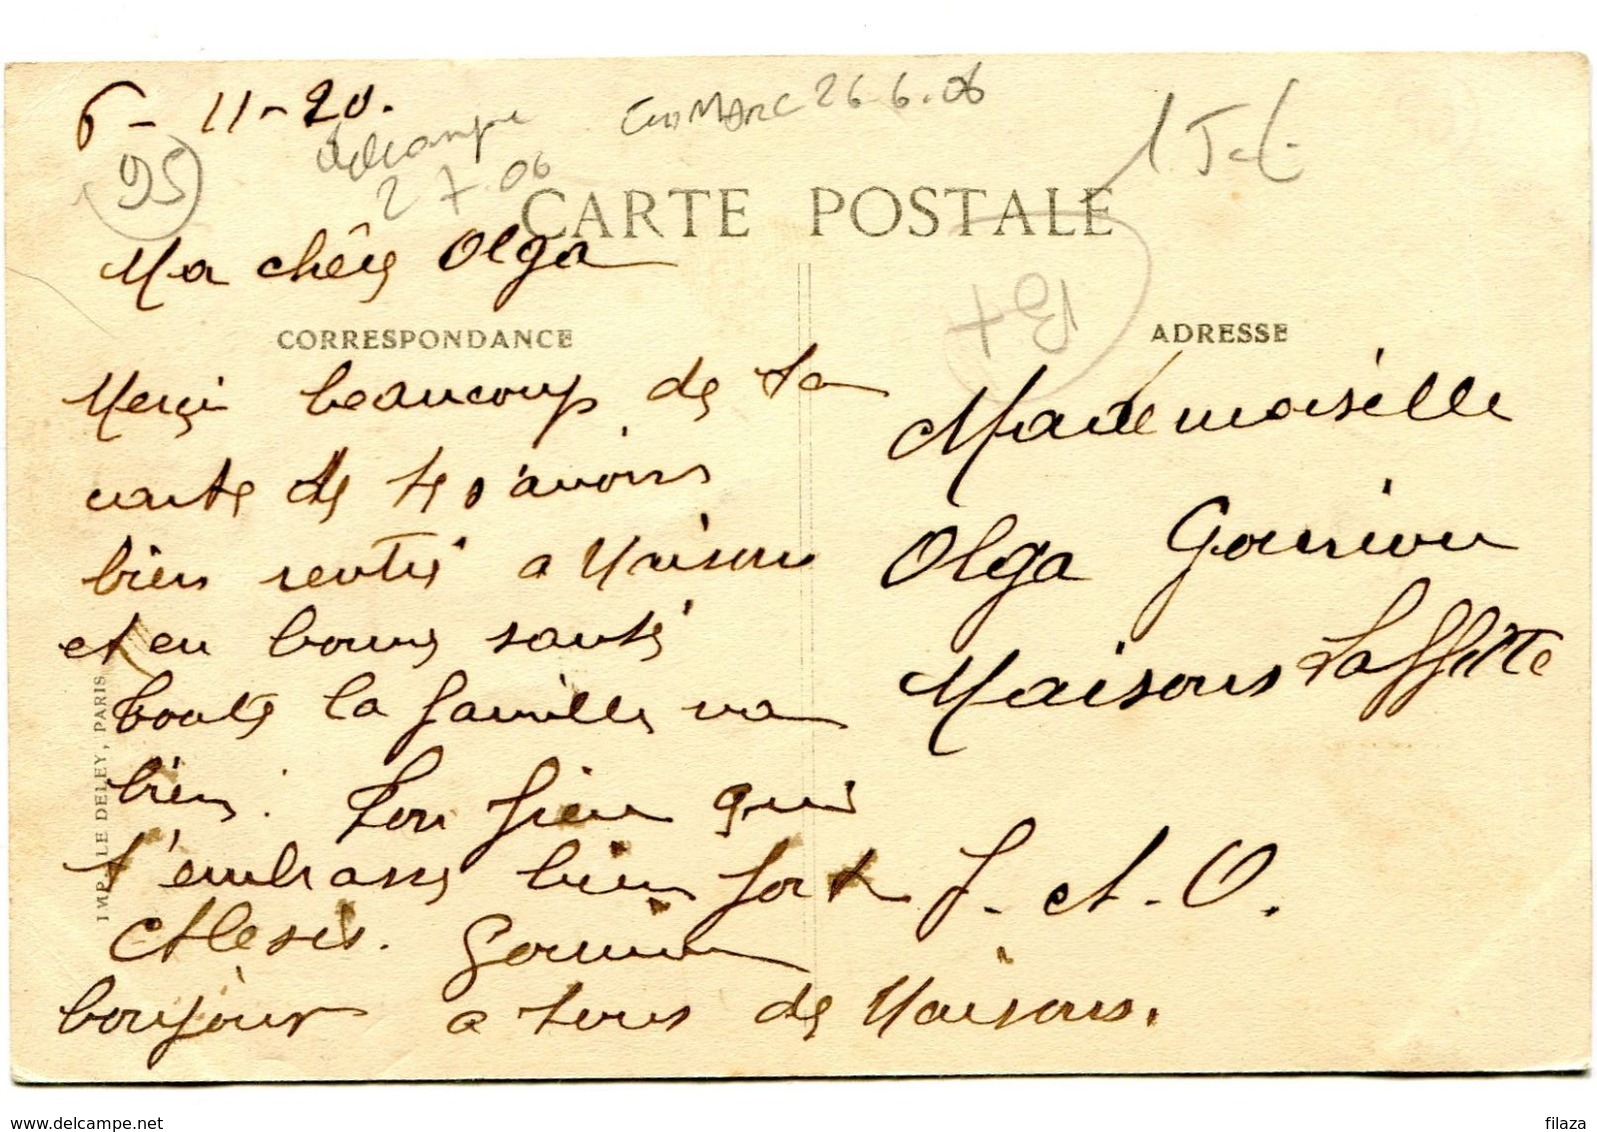 6 - 11 - 20.
95
delcampe
2 7 06
26.6.06
CARTE POSTALE
Ma chère Olga
CORRESPONDANCE
Merci beaucoup de ta
carte de te savoir
bien rentré a Maisons
et en bonne santé
toute la famille va
bien. Ton qui
t'embrasse bien fort
Alexis.
bonjour a tous de Maisons.
IMP. LE DELEY, PARIS
ADRESSE
Mademoiselle
Olga
Maisons Laffitte
S. et. O.
delcampe.net
filaza